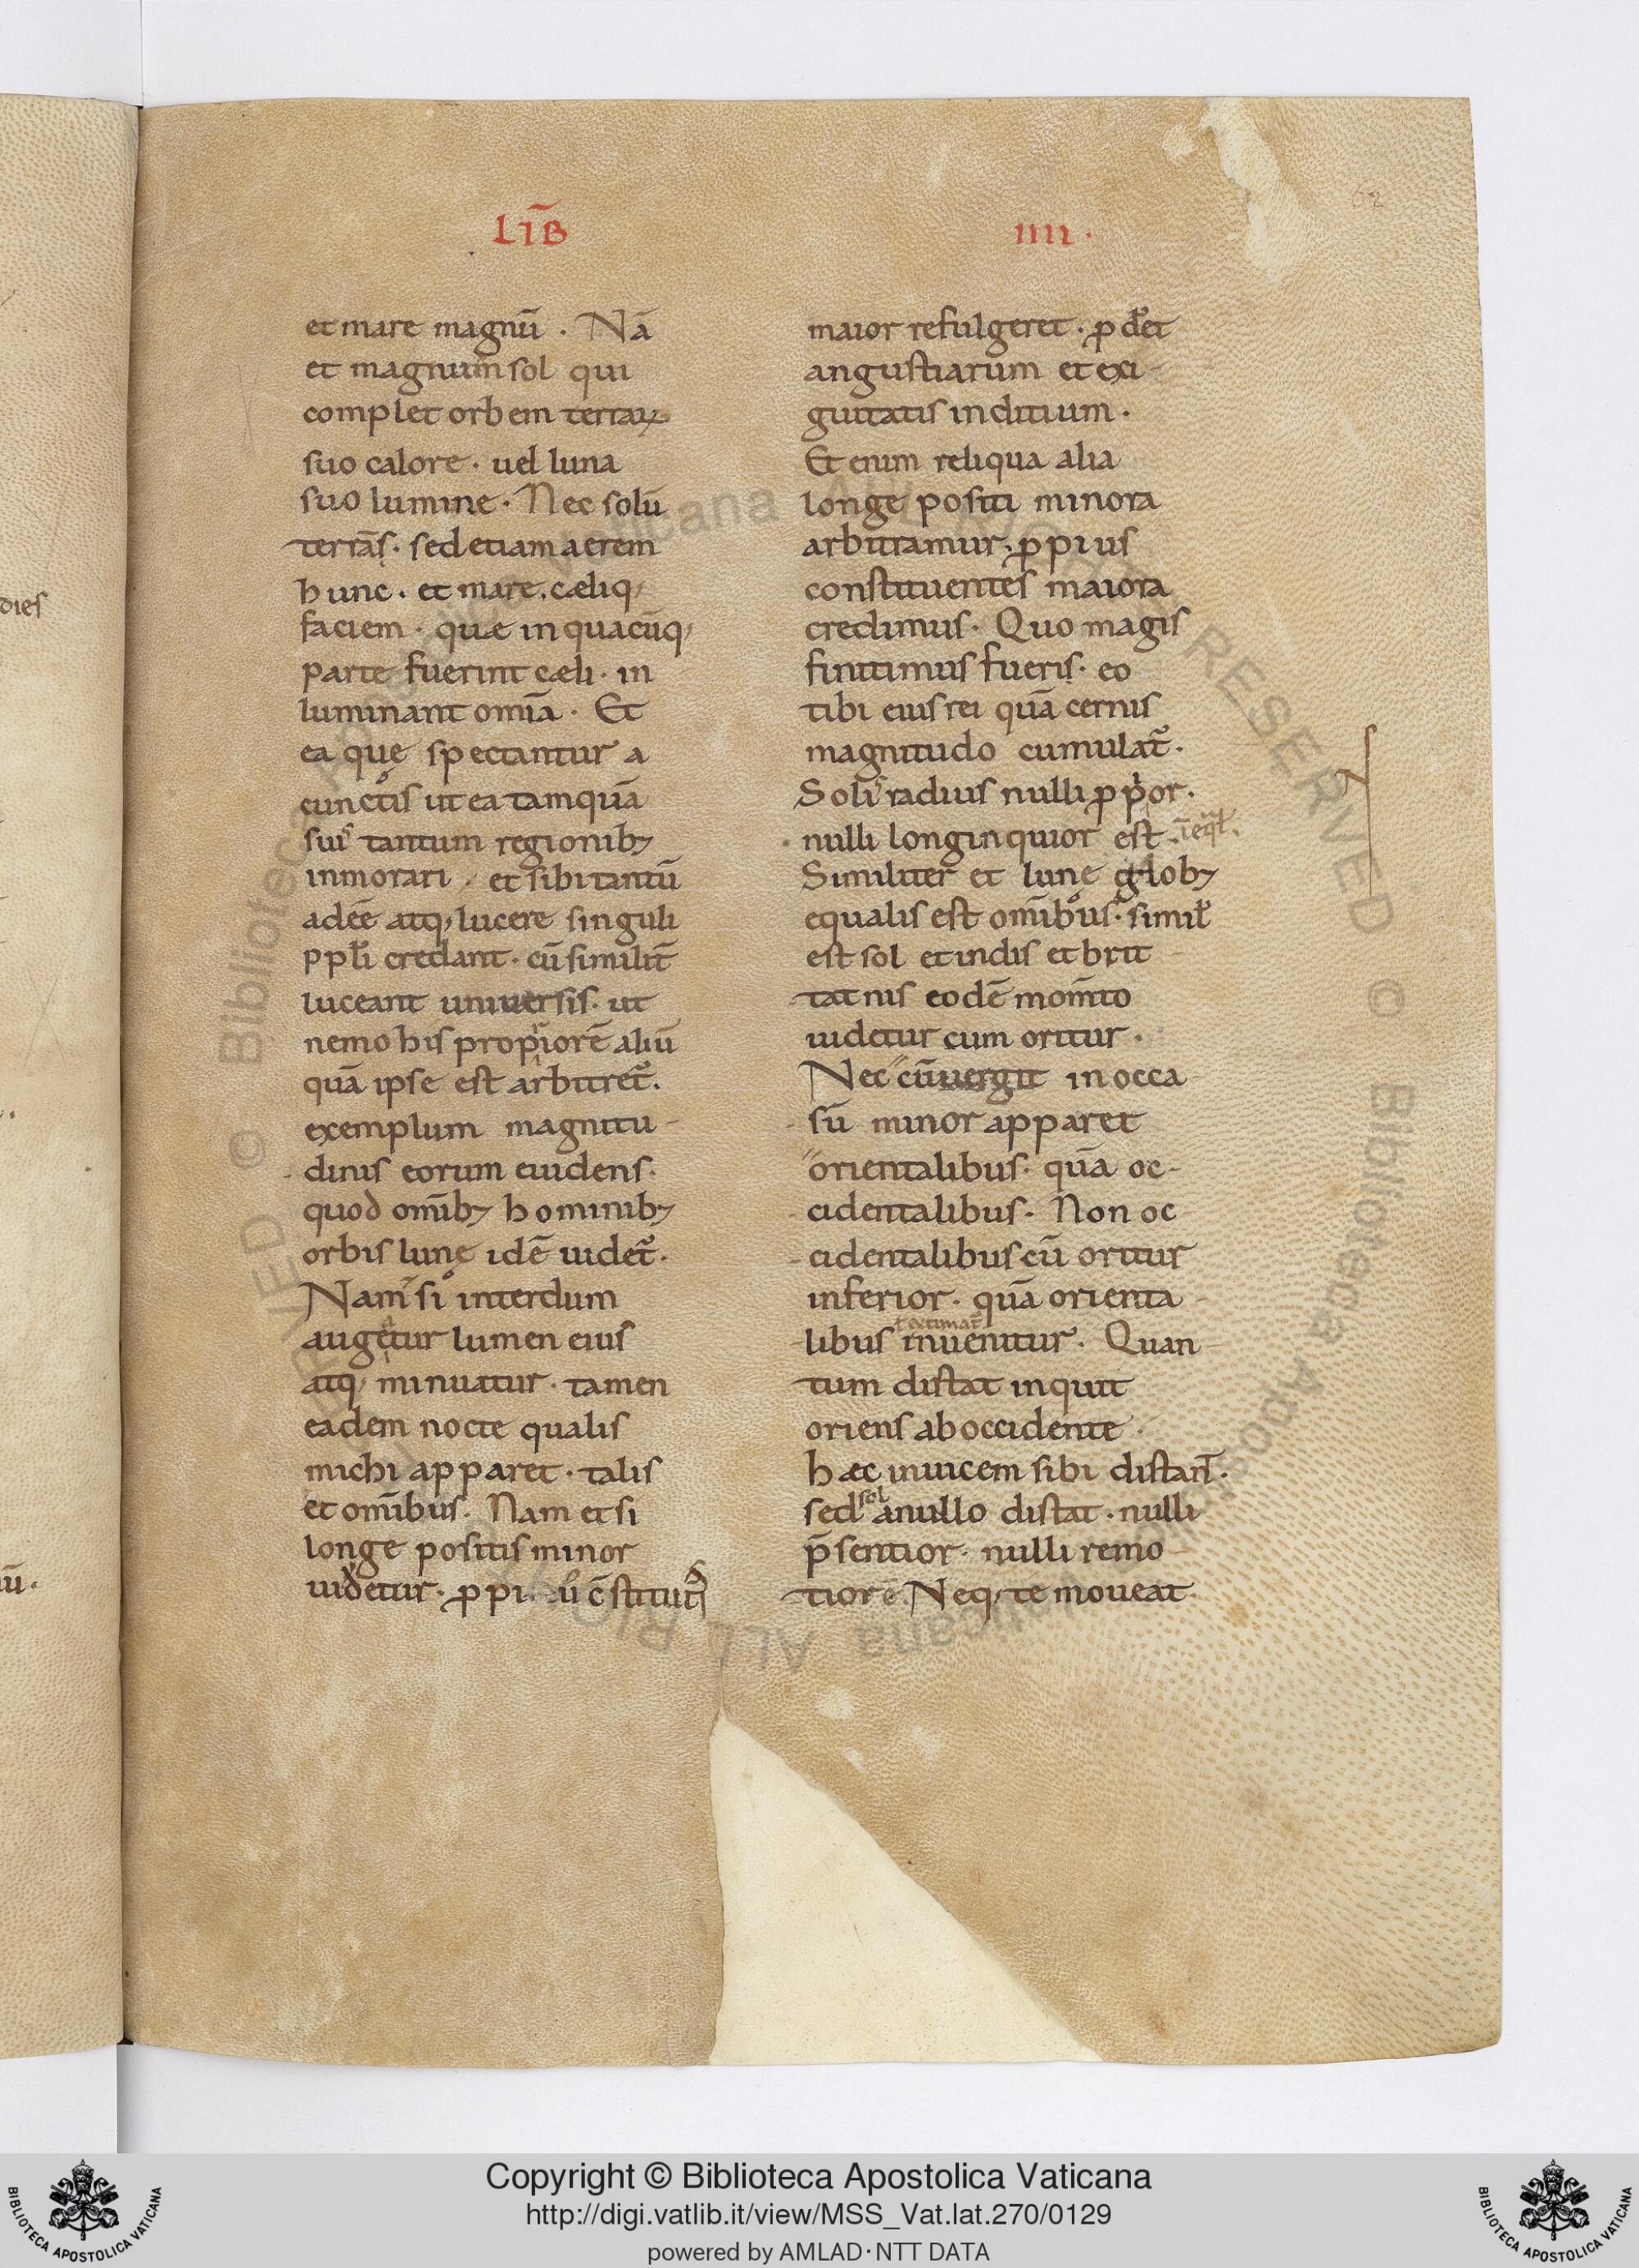 LIB̄
IIII.
et mare magnū. Nā
et magnum sol qui
complet orbem terraꝝ
suo calore. uel luna
suo lumine. Nec solū
terrās. sed etiam aerem
hunc. et mare. cæliq;
faciem. quæ in quacūq;
parte fuerint cæli. in
luminant omīa. Et
ea quę spectantur a
cunctis ut ea tamquā
suis tantum regionibꝫ
inmorari. et sibi tantū
adeē atq; lucere singuli
ppłi credant. cū similit̄
luceant uniuersis. ut
nemo his propiorē aliū
quā ipse est arbitret᷑.
exemplum magnitu-
dinis eorum euidens.
quod om̄ibꝫ hominibꝫ
orbis lunę idē uidet᷑.
Nam si interdum
augetur lumen eius
atq; minuatur. tamen
eadem nocte qualis
michi apparet. talis
et om̄ibus. Nam et si
longe positis minor
uidetur. ꝓpi
maior refulgeret. ꝓdet
angustiarum et exi-
guitatis inditium.
Et enim reliqua alia
longe positi minora
arbitramur. ꝓpius
constituentes maiora
credimus. Quo magis
finitimus fueris. eo
tibi eius rei quā cernis
magnitudo cumulat᷑.
Solis radius nulli ꝓpior.
nulli longinquior est.
Similiter et lunę globꝫ
equalis est om̄ibus. simił
est sol et indis et brit
tatnis eodē mom̄to
uidetur cum oritur.
Nec cū uergit in occa-
sū minor apparet
orientalibus. quā oc-
cidentalibus. Non oc
cidentalibus cū oritur
inferior. quā orienta-
libus inuenitur. Quan-
tum distat inquit
oriens ab occidente
hæc inuicem sibi distan̄.
sed sol a nullo distat. nulli
p̄sentior. nulli remo-
tior ē. Neq; te moueat
dies
ū.
Copyright © Biblioteca Apostolica Vaticana
http://digi.vatlib.it/view/MSS_Vat.lat.270/0129
powered by AMLAD·NTT DATA
BIBLIOTECA APOSTOLICA VATICANA
BIBLIOTECA APOSTOLICA VATICANA